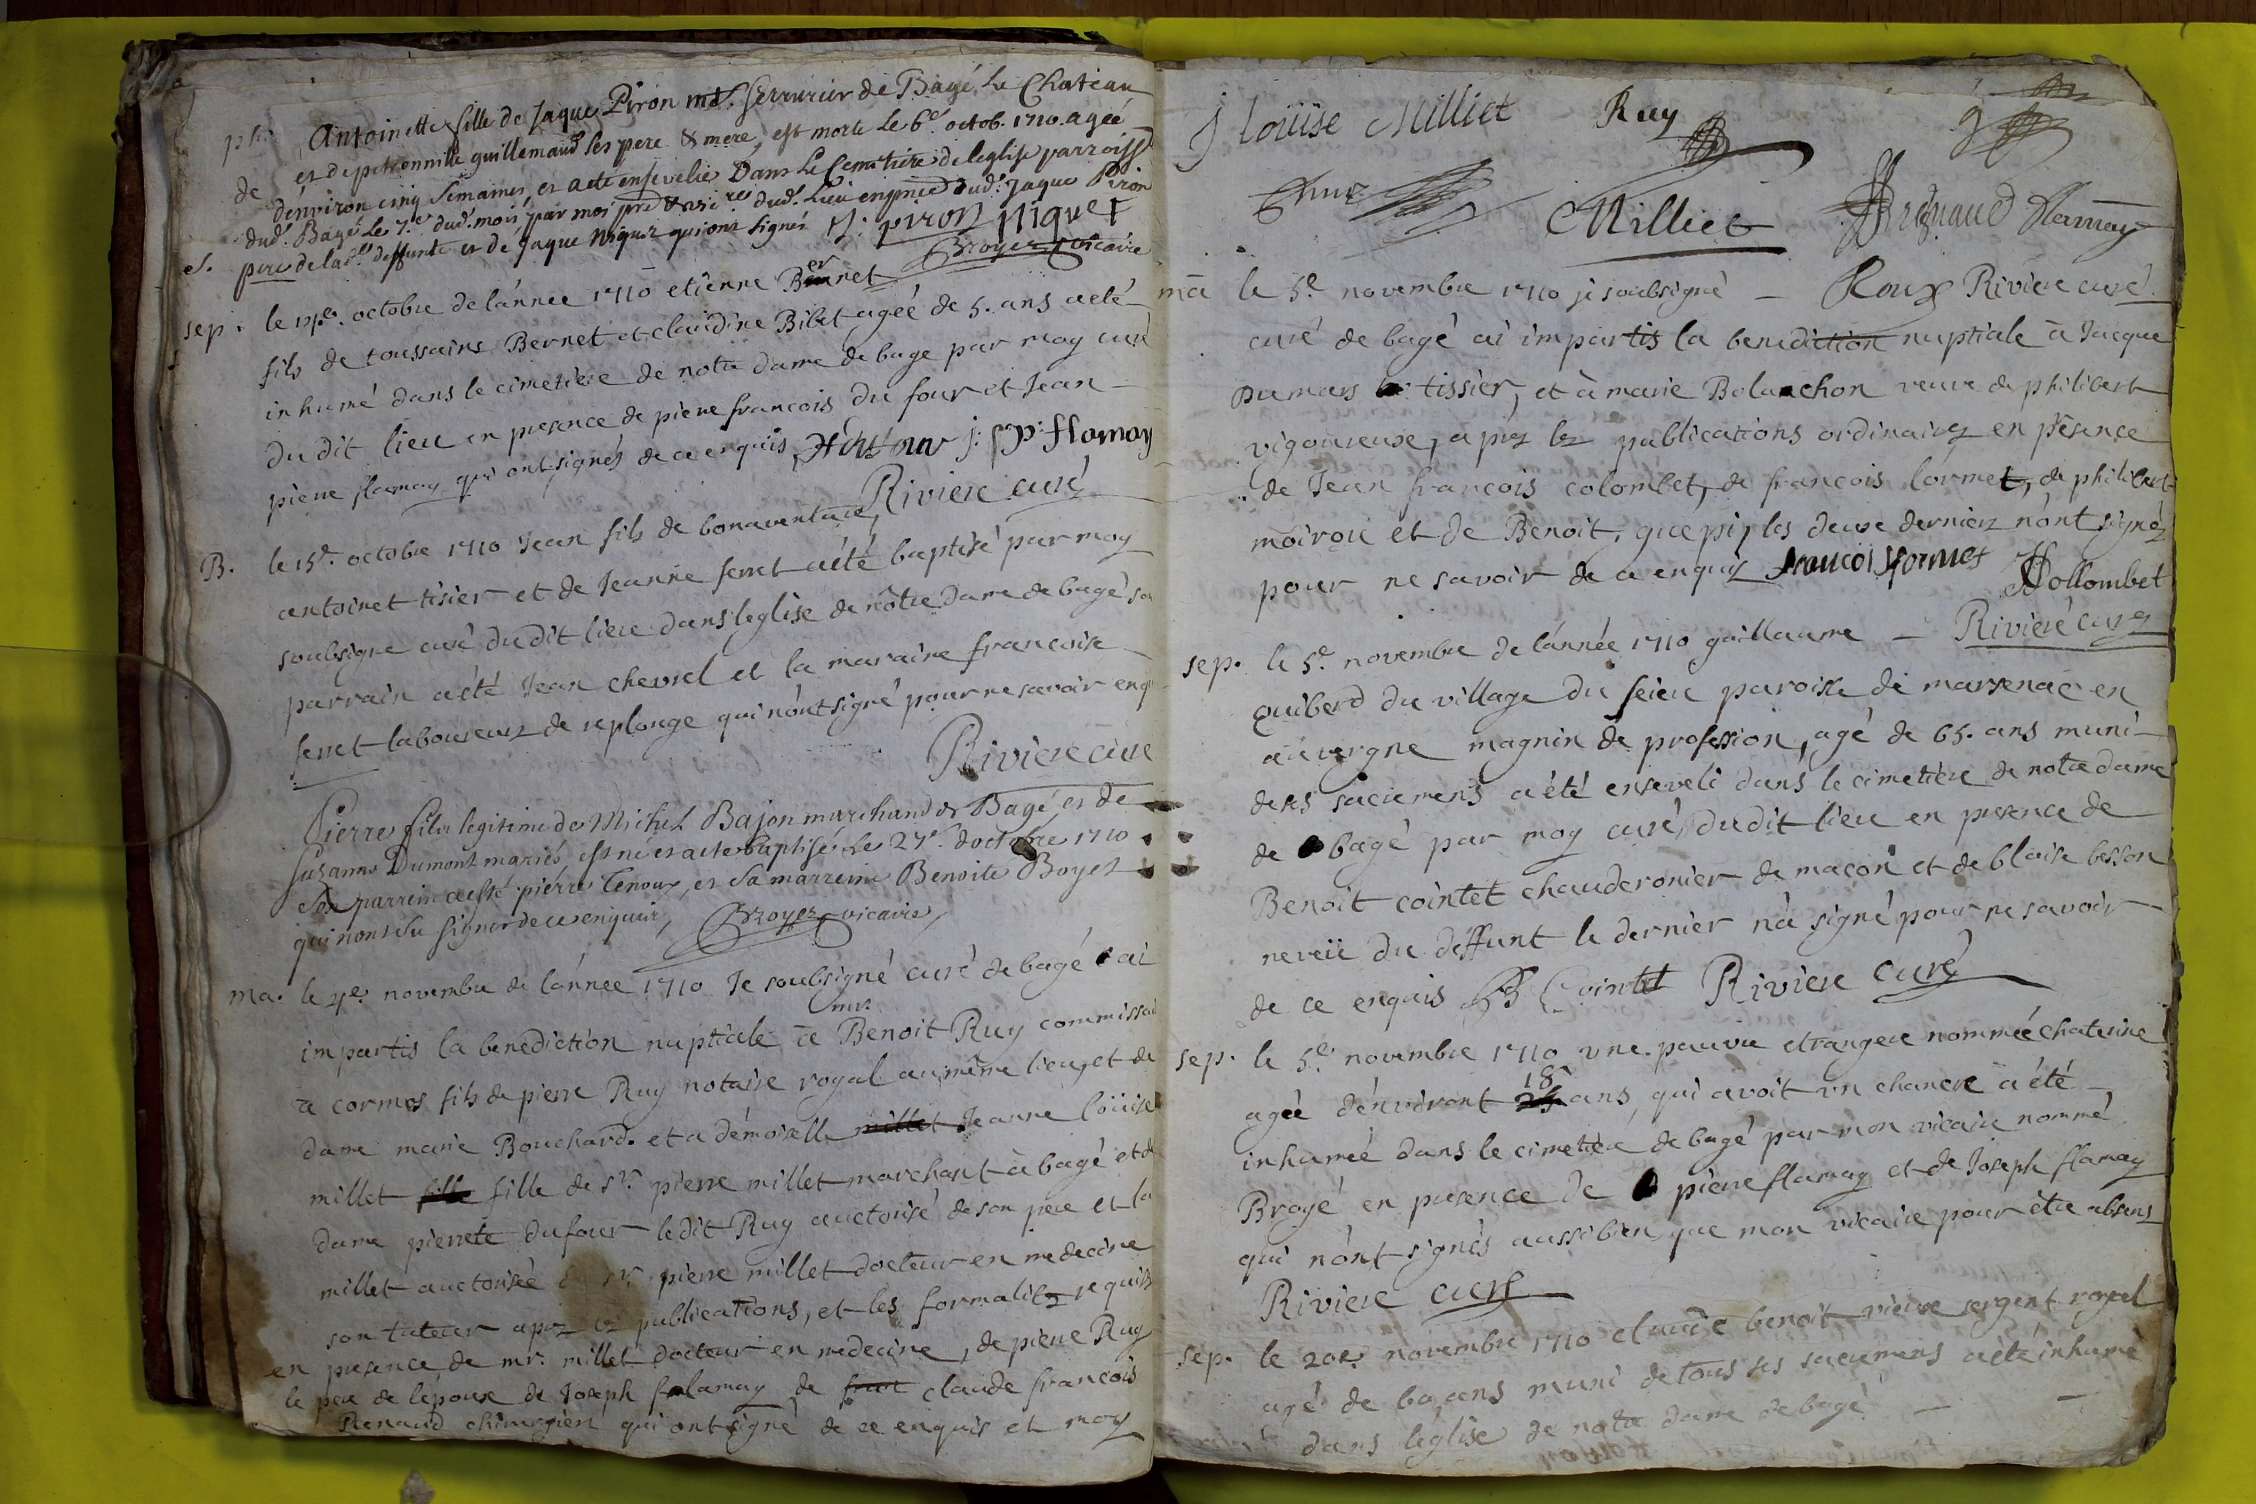 Antoinette fille de Jaque Piron md. serrurier de Bagé Le Chateau
et de petronnille guillemaud ses pere & mere, est morte Le 6e. octob. 1710. agée
d'environ cinq semaines, et a eté ensevelie Dans Le Cemetiere de leglise parroiss
dud. Bagé Le 7.e dud. mois, par moi vicre dud. Lieu en pnce dud. Jaque Piron
pere de la de. deffunte et de Jaque Niguet qui ont signés J: piron Niguet
Broyer vicaire
sep. le octobre de lánnee 1710 etienne Bernet
fils de toussains Bernet et claudine Bibet agéé de 5. ans a eté
inhumé dans le cimetiere de notre dame de bage par moy curé
du dit lieu en presence de pierre francois du four et Jean
pierre flamay qui ont signés de ce enquis Dufour j: p: flamay
Riviere curé
B. le 15e. octobre 1710 Jean fils de bonaventure
antoinet tisier et de Jeanne ferret a été baptisé par moy
soubsigne curé du dit lieu dans leglise de nôtre dame de bagé son
parrain a été Jean chevrel et la maraine francoise
ferret laboureurs de replonge qui nónt signé pour ne savoir enq
Riviere curé
Pierre fils legitime de Michel Bajon marchand de Bagé et de
Suzanne Dumont mariés, est né et a ete baptisé Le 27e. doctobre 1710
son parrein a esté piérre Tenoux, et sa marreine Benoite Boyer
qui nont su signer de ce enquis, Broyer vicaire
ma. le 4e. novembre de lánnee 1710 Je soubsigné curé de bagé ai
impartis la benediction nuptiale a mr. Benoit Ruy commissai
a cormos fils de pierre Ruy notaire royal au même lieu, et de
dame marie Bouchard. et a démoiselle millet Jeanne loüise
millet fille fille de sr. pierre millet marchant à bagé et de
dame pierrete dufour ledit Ruy auctorisé de son pere et la
millet auctorisée d sr. pierre millet docteur en medecine
son tuteur apres les publications, et les formalitez requises
en presence de mr. millet docteur en medecine, de pierre Ruy
le pere de lépoux de Joseph flamay de claude francois
Renaud chirurgien qui ont signé de ce enquis et moy
j loüise Milliet Ruy
Milliet Renaud flamay
ma le 5e. novembre 1710 je soubsigné — Roux Riviere curé
curé de bagé ai impartis la benediction nuptiale à Jacque
Dumars tissier, et à marie Bolanchon veuve de philibert
vigoureuse, aprez les publications ordinaires en présence
de Jean françois colombet, de françois lórmet, de philibert
moirou et de Benoit guepi, les deux derniers nónt signéz
pour ne savoir de ce enquis francois lormet Collombet
Riviere curé
sep. le 5e. novembre de lánnée 1710 guillaume —
Quiberd du village du feieu paroisse de marsenac en
auvergne magnin de profession, agé de 65. ans muni
de ses sacremens a été enseveli dans le cimetiere de notre dame
de bagé par moy curé du dit lieu en presence de
Benoit cointet chauderonier de macon et de blaise besson
neveü du deffunt le dernier na signé pour ne savoir
de ce enquis B Cointet Riviere curé
sep. le 5e. novembre 1710 une pauvre etrangere nomméé chaterine
agéé dénviront 18 ans, qui avoit un chancre a été
inhuméé dans le cimetiere de bagé par mon vicaire nommé
Broyé en presence de pierre flamay et de Joseph flamay
qui nónt signés aussi bien que mon vicaire pour étre absens
Riviere curé
sep. le 20e. novembre 1710 claude benoit vieux sergent royal
agé de 60 ans muni de tous ses sacremens a été inhumé
dans léglise de notre dame de bagé —